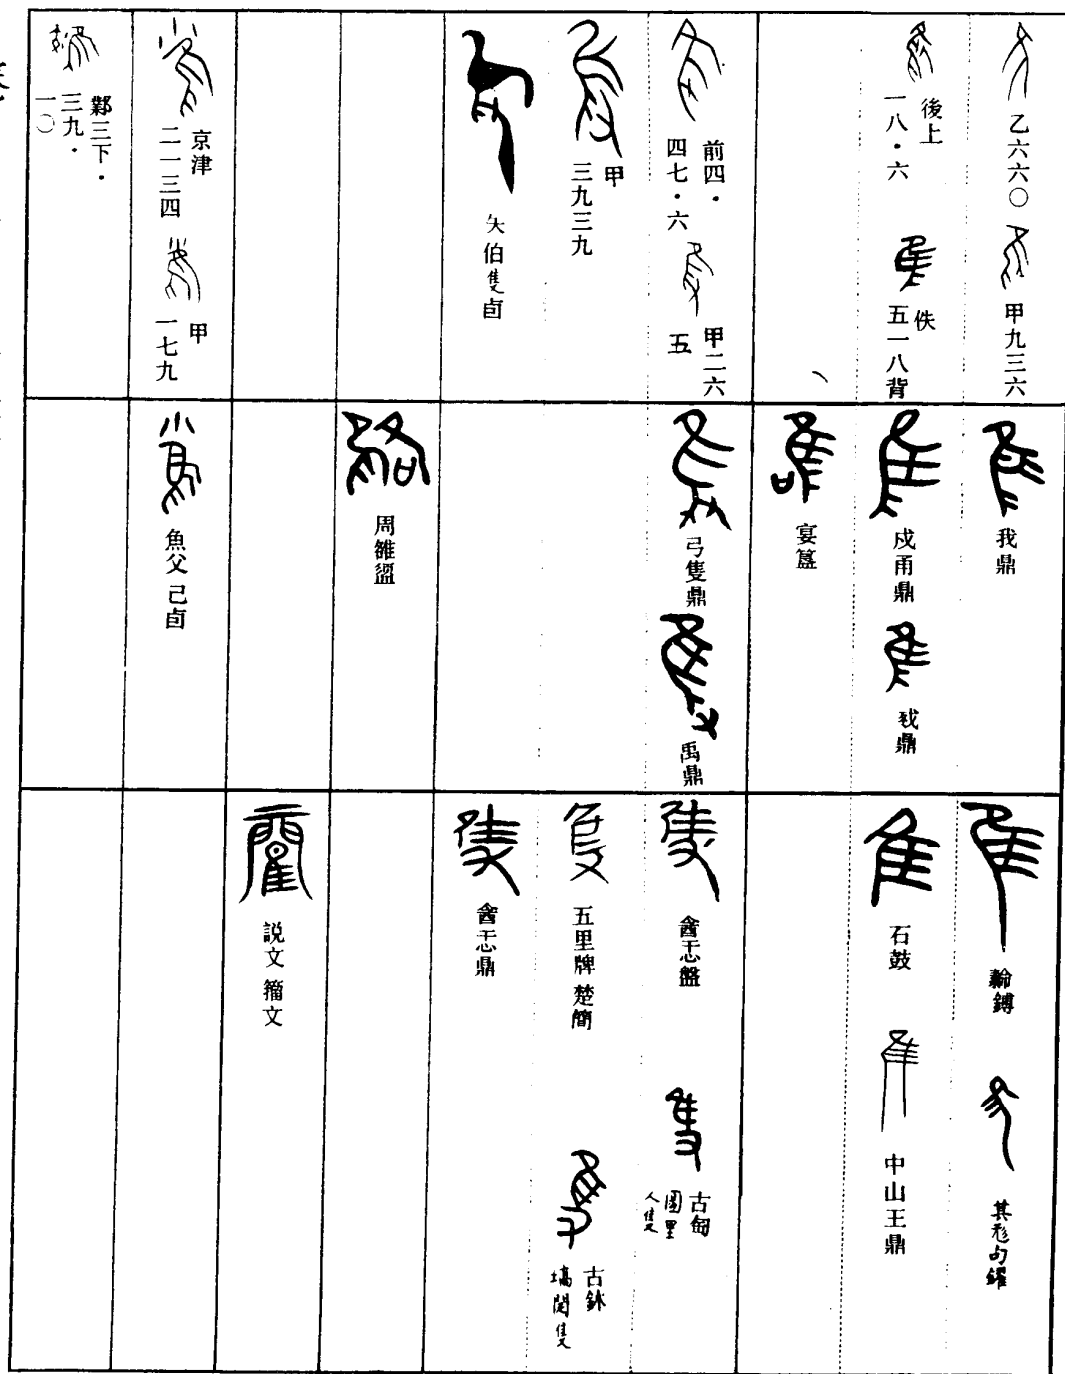 乙六六〇
甲九三六
後上
一八·六
佚
五一八背
前四·
四七·六
甲二六
五
甲
三九三九
矢伯隻卣
京津
二一三四
甲
一七九
鄴三下·
三九·
一〇
我鼎
戍甬鼎
戜鼎
宴簋
弓隻鼎
禹鼎
周雒盨
魚父己卣
䋣鎛
其㐱句鑃
石鼓
中山王鼎
酓忎盤
古匋
圆里
人隻
五里牌楚簡
古鉨
塙閭隻
酓忎鼎
説文籀文